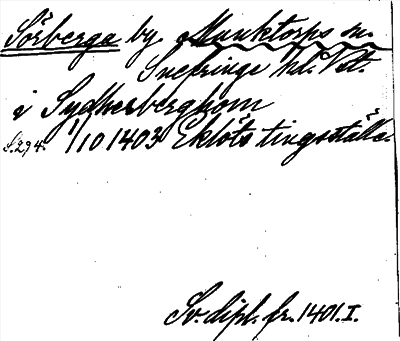 Sörberga by, Munktorps sn.
Snefringe hd. Vstm.
i Sydherberghom
S. 294. 1/10 1403 Eklöts tingsställe.
Sv. dipl. fr. 1401. I.